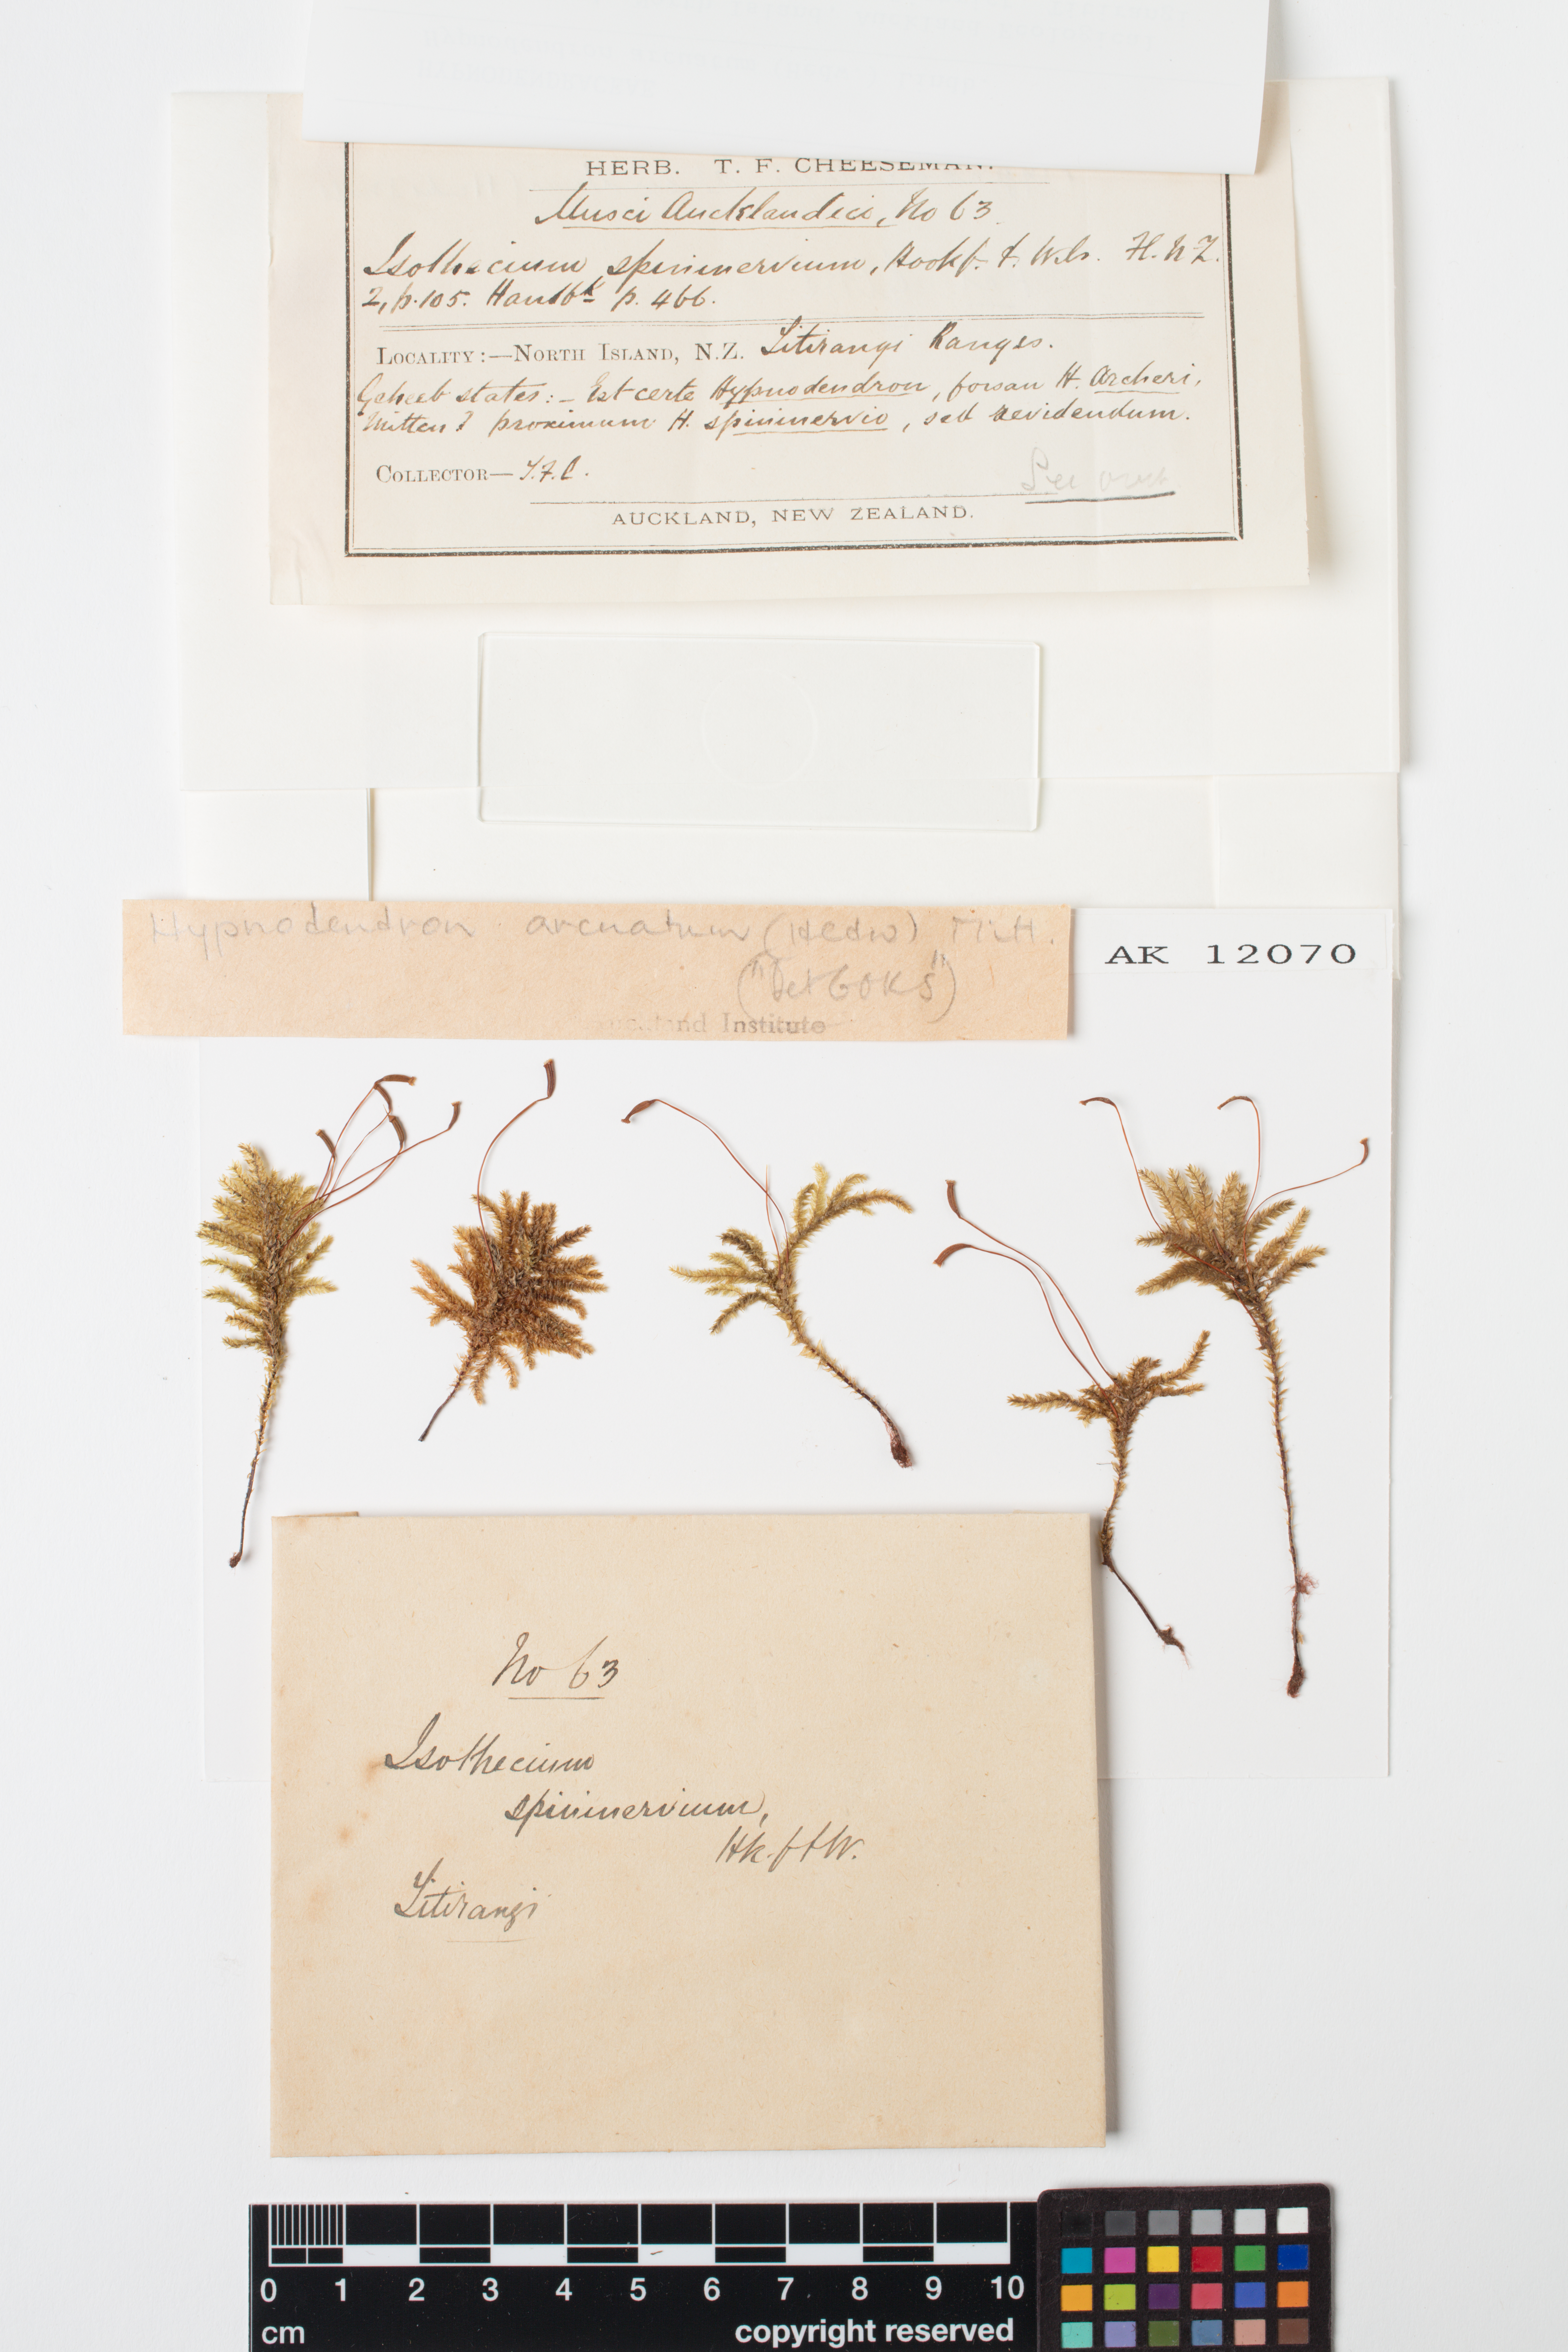 HERB. T. F. CHEESEMAN.
Musci Aucklandici, No 63
Isothecium spininervium, Hook f. & Wils. Fl. N Z.
2, p. 105. Handbk p. 466.
LOCALITY:—NORTH ISLAND, N.Z. Titirangi Ranges.
Geheeb states:— Est certe Hypnodendron, forsan H. Archeri,
Mitten? proximum H. spininervio, sed revidendum.
COLLECTOR— T.F.C.
See over
AUCKLAND, NEW ZEALAND.
Hypnodendron arcuatum (Hedw) Mitt.
("Det GOKS")
AK 12070
Institute
No 63
Isothecium
spininervium,
Hk. f & W.
Titirangi
0 1 2 3 4 5 6 7 8 9 10
cm
copyright reserved